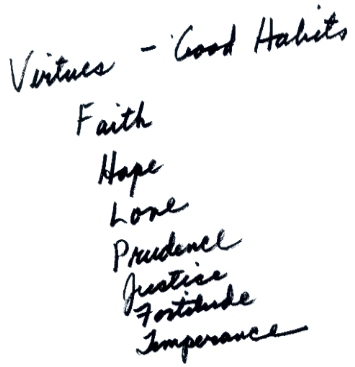 Virtues - Good Habits
Faith
Hope
Love
Prudence
Justise
Fortitude
Temperance